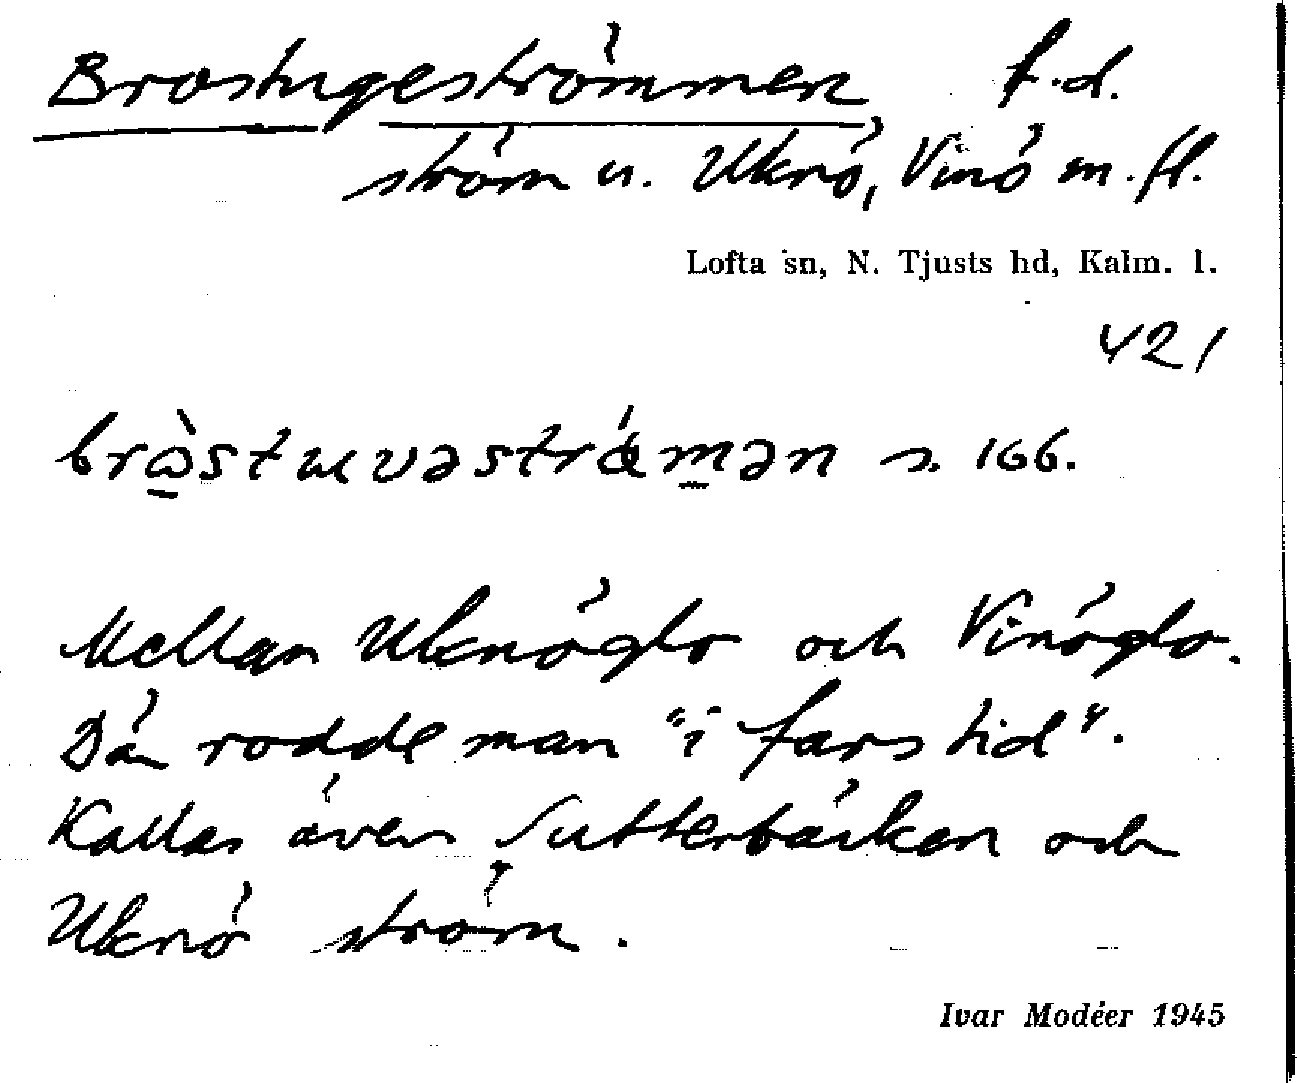 Brostugeströmmen f.d.
ström n. Uknö, Vinö m.fl.
Lofta sn, N. Tjusts hd, Kalm. l.
421
s. 166.
Mellan Uknöglo och Vinöglo.
Där rodde man "i fars tid".
Kallas även Sutterbäcken och
Uknö ström.
Ivar Modéer 1945